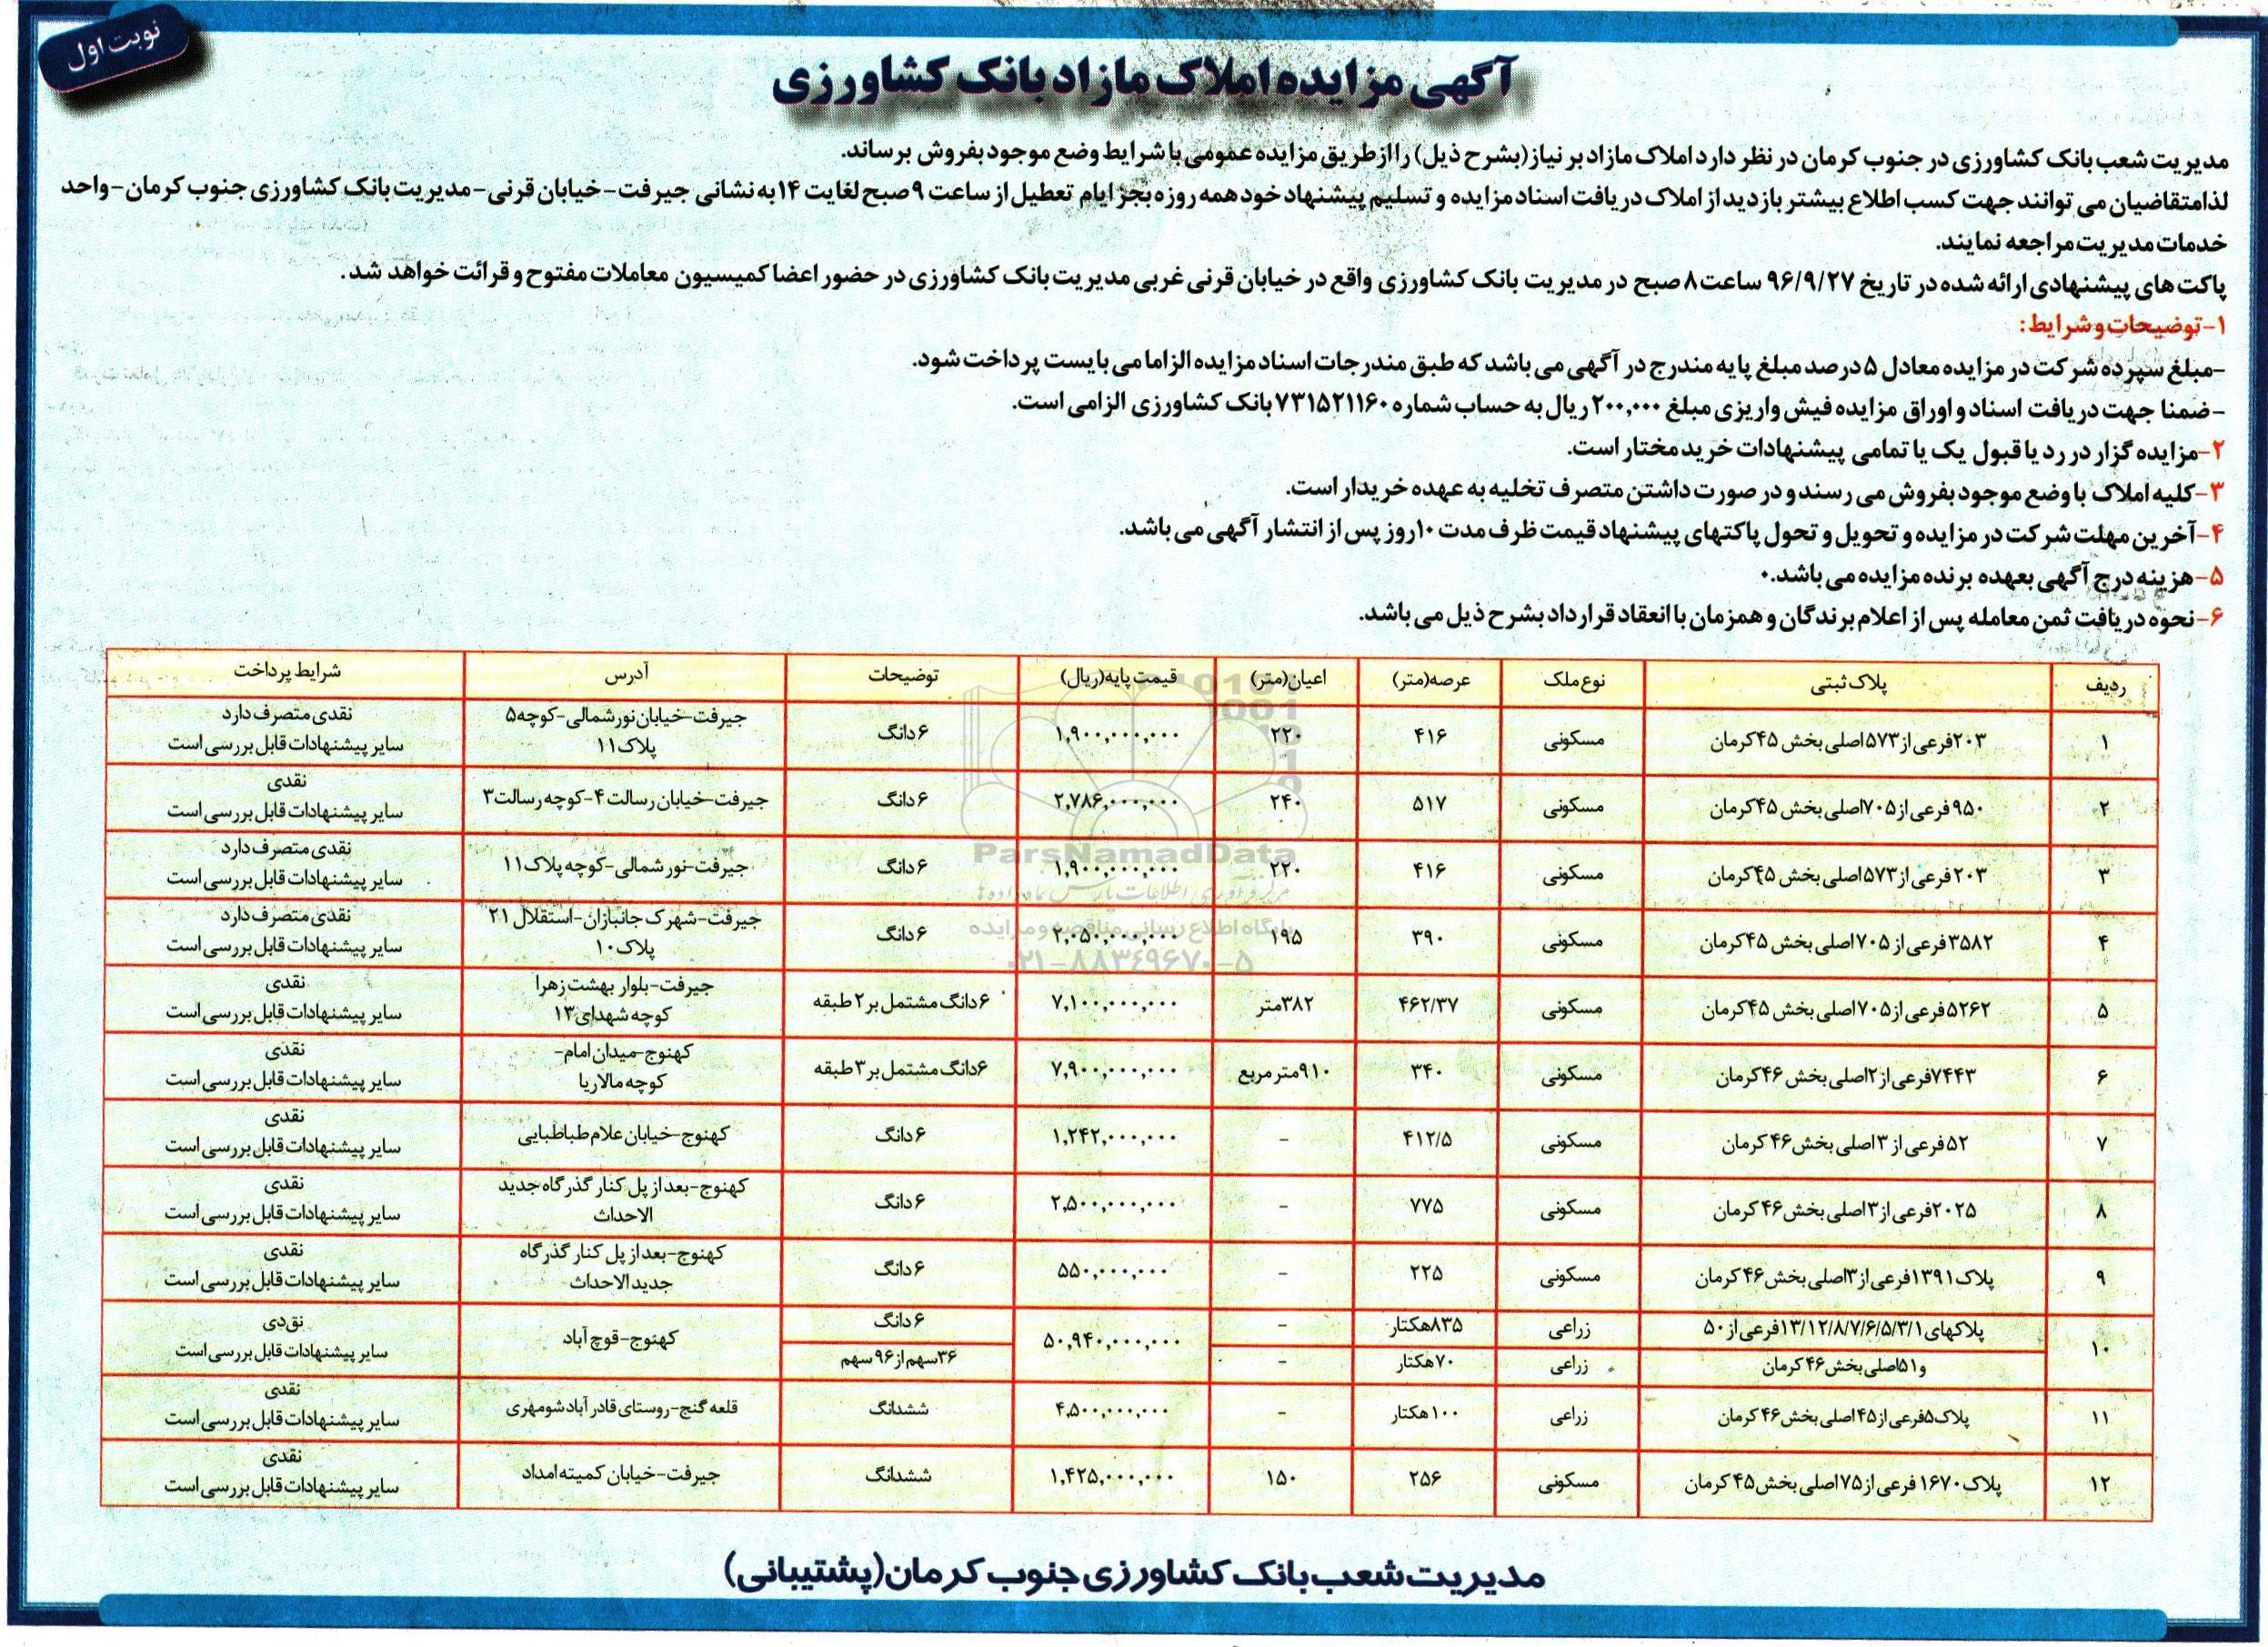 نوبت اول
آگهی مزایده املاک مازاد بانک کشاورزی
مدیریت شعب بانک کشاورزی در جنوب کرمان در نظر دارد املاک مازاد بر نیاز (بشرح ذیل) را از طریق مزایده عمومی با شرایط وضع موجود بفروش برساند.
لذا متقاضیان می توانند جهت کسب اطلاع بیشتر بازدید از املاک دریافت اسناد مزایده و تسلیم پیشنهاد خود همه روزه بجز ایام تعطیل از ساعت ۹ صبح لغایت ۱۴ به نشانی جیرفت-خیابان قرنی-مدیریت بانک کشاورزی جنوب کرمان-واحد
خدمات مدیریت مراجعه نمایند.
پاکت های پیشنهادی ارائه شده در تاریخ ۹۶/۹/۲۷ ساعت ۸ صبح در مدیریت بانک کشاورزی واقع در خیابان قرنی غربی مدیریت بانک کشاورزی در حضور اعضا کمیسیون معاملات مفتوح و قرائت خواهد شد.
۱-توضیحات و شرایط:
-مبلغ سپرده شرکت در مزایده معادل ۵ درصد مبلغ پایه مندرج در آگهی می باشد که طبق مندرجات اسناد مزایده الزاما می بایست پرداخت شود.
-ضمنا جهت دریافت اسناد و اوراق مزایده فیش واریزی مبلغ ۲۰۰,۰۰۰ ریال به حساب شماره ۷۳۱۵۲۱۱۶۰ بانک کشاورزی الزامی است.
۲-مزایده گزار در رد یا قبول یک یا تمامی پیشنهادات خرید مختار است.
۳-کلیه املاک با وضع موجود بفروش می رسند و در صورت داشتن متصرف تخلیه به عهده خریدار است.
۴-آخرین مهلت شرکت در مزایده و تحویل و تحول پاکتهای پیشنهاد قیمت ظرف مدت ۱۰ روز پس از انتشار آگهی می باشد.
۵-هزینه درج آگهی بعهده برنده مزایده می باشد.
۶-نحوه دریافت ثمن معامله پس از اعلام برندگان و همزمان با انعقاد قرارداد بشرح ذیل می باشد.
ردیف پلاک ثبتی نوع ملک عرصه(متر) اعیان(متر) قیمت پایه(ریال) توضیحات آدرس شرایط پرداخت
۱ ۲۰۳فرعی از ۵۷۳اصلی بخش ۴۵کرمان مسکونی ۴۱۶ ۲۲۰ ۱,۹۰۰,۰۰۰,۰۰۰ ۶دانگ جیرفت-خیابان نور شمالی-کوچه۵ پلاک۱۱ نقدی متصرف دارد سایر پیشنهادات قابل بررسی است
۲ ۹۵۰ فرعی از ۷۰۵اصلی بخش ۴۵کرمان مسکونی ۵۱۷ ۲۴۰ ۲,۷۸۶,۰۰۰,۰۰۰ ۶دانگ جیرفت-خیابان رسالت ۴-کوچه رسالت۳ نقدی سایر پیشنهادات قابل بررسی است
۳ ۲۰۳ فرعی از ۵۷۳اصلی بخش ۴۵کرمان مسکونی ۴۱۶ ۲۲۰ ۱,۹۰۰,۰۰۰,۰۰۰ ۶دانگ جیرفت-نور شمالی-کوچه پلاک۱۱ نقدی متصرف دارد سایر پیشنهادات قابل بررسی است
۴ ۳۵۸۲فرعی از ۷۰۵اصلی بخش ۴۵کرمان مسکونی ۳۹۰ ۱۹۵ ۲,۰۵۰,۰۰۰,۰۰۰ ۶دانگ جیرفت-شهرک جانبازان-استقلال ۲۱ پلاک۱۰ نقدی متصرف دارد سایر پیشنهادات قابل بررسی است
۵ ۵۲۶۲فرعی از ۷۰۵اصلی بخش ۴۵کرمان مسکونی ۴۶۲/۳۷ ۳۸۲متر ۷,۱۰۰,۰۰۰,۰۰۰ ۶دانگ مشتمل بر ۲طبقه جیرفت-بلوار بهشت زهرا کوچه شهدای۱۳ نقدی سایر پیشنهادات قابل بررسی است
۶ ۷۴۴۳فرعی از ۲اصلی بخش ۴۶کرمان مسکونی ۳۴۰ ۹۱۰مترمربع ۷,۹۰۰,۰۰۰,۰۰۰ ۶دانگ مشتمل بر ۳طبقه کهنوج-میدان امام- کوچه مالاریا نقدی سایر پیشنهادات قابل بررسی است
۷ ۵۲فرعی از ۳اصلی بخش ۴۶کرمان مسکونی ۴۱۲/۵ - ۱,۲۴۲,۰۰۰,۰۰۰ ۶دانگ کهنوج-خیابان علام طباطبایی نقدی سایر پیشنهادات قابل بررسی است
۸ ۲۰۲۵فرعی از ۳اصلی بخش ۴۶کرمان مسکونی ۷۷۵ - ۲,۵۰۰,۰۰۰,۰۰۰ ۶دانگ کهنوج-بعد از پل کنار گذرگاه جدید الاحداث نقدی سایر پیشنهادات قابل بررسی است
۹ پلاک ۱۳۹۱فرعی از ۳اصلی بخش ۴۶کرمان مسکونی ۲۲۵ - ۵۵۰,۰۰۰,۰۰۰ ۶دانگ کهنوج-بعد از پل کنار گذرگاه جدید الاحداث نقدی سایر پیشنهادات قابل بررسی است
۱۰ پلاکهای ۱۳/۱۲/۸/۷/۶/۵/۳/۱فرعی از ۵۰ زراعی ۸۳۵هکتار - ۵۰,۹۴۰,۰۰۰,۰۰۰ ۶دانگ کهنوج-قوچ آباد نقدی سایر پیشنهادات قابل بررسی است
و۵۱اصلی بخش ۴۶کرمان زراعی ۷۰هکتار - ۳۶سهم از ۹۶سهم
۱۱ پلاک۵فرعی از ۴۵اصلی بخش ۴۶کرمان زراعی ۱۰۰هکتار - ۴,۵۰۰,۰۰۰,۰۰۰ ششدانگ قلعه گنج-روستای قادر آباد شومهری نقدی سایر پیشنهادات قابل بررسی است
۱۲ پلاک ۱۶۷۰ فرعی از ۷۵اصلی بخش ۴۵کرمان مسکونی ۲۵۶ ۱۵۰ ۱,۴۲۵,۰۰۰,۰۰۰ ششدانگ جیرفت-خیابان کمیته امداد نقدی سایر پیشنهادات قابل بررسی است
ParsNamadData
پایگاه اطلاع رسانی مناقصه و مزایده
۰۲۱-۸۸۳۴۹۶۷۰-۵
مدیریت شعب بانک کشاورزی جنوب کرمان(پشتیبانی)